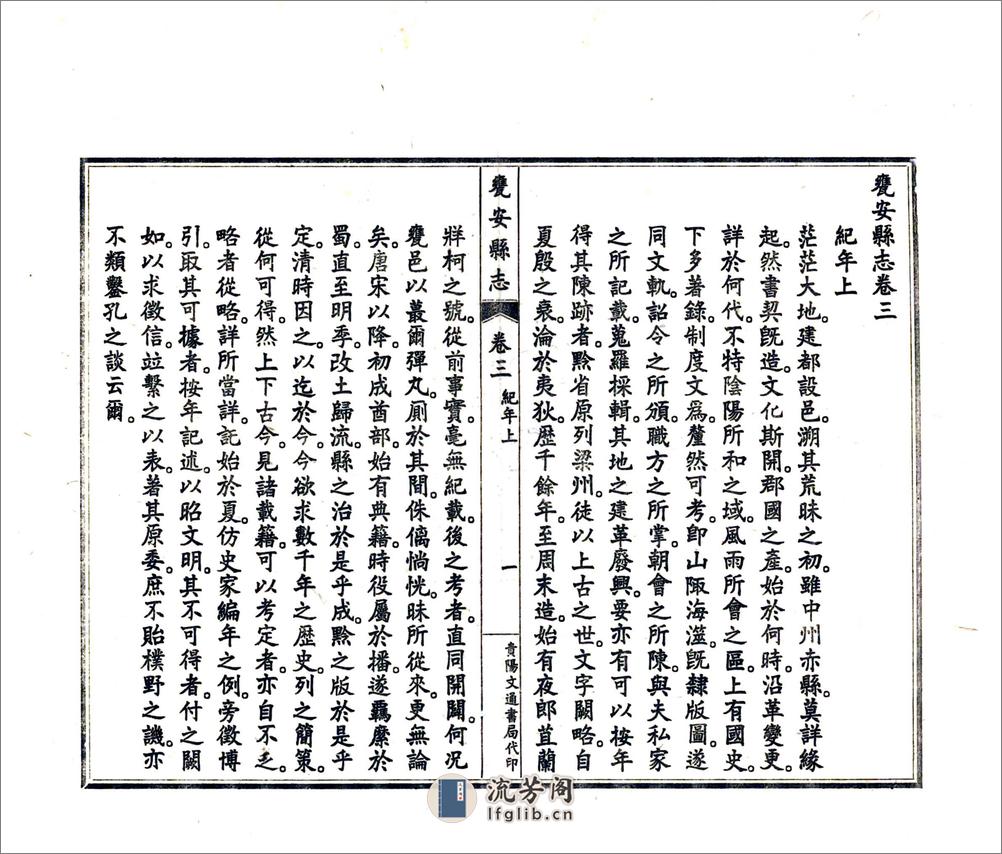 甕安縣志卷三
紀年上
茫茫大地建都設邑溯其荒昧之初。雖中州赤縣莫詳緣
起。然書契既造文化斯開郡國之產。始於何時。沿革變更。
詳於何代。不特陰陽所和之域。風雨所會之區。上有國史。
下多著錄。制度文爲釐然可考。卽山陬海澨。旣隸版圖。遂
同文軌。詔令之所頒。職方之所掌。朝會之所陳。與夫私家
之所記載。蒐羅採輯。其地之建革廢興。要亦有可以按年
得其陳跡者。黔省原列梁州。徒以上古之世。文字闕略。自
夏殷之衰淪於夷狄。歷千餘年。至周末造。始有夜郎苴蘭
甕安縣志
卷三
紀年上
一
貴陽文通書局代印
牂柯之號。從前事實。毫無紀載。後之考者。直同開闢。何況
甕邑以蕞爾彈丸。廁於其間。侏儷惝恍。昧所從來。更無論
矣。唐宋以降。初成酋部。始有典籍。時役屬於播。遂羈縻於
蜀。直至明季。改土歸流。縣之治於是乎成。黔之版於是乎
定。清時因之。以迄於今。今欲求數千年之歷史。列之簡策。
從何可得。然上下古今。見諸載籍。可以考定者。亦自不乏。
略者從略。詳所當詳。託始於夏。仿史家編年之例。旁徵博
引。取其可據者。按年記述。以昭文明。其不可得者。付之闕
如。以求徵信。竝繫之以表。著其原委。庶不貽樸野之譏。亦
不類鑿孔之談云爾。
流芳阁
lfglib.cn